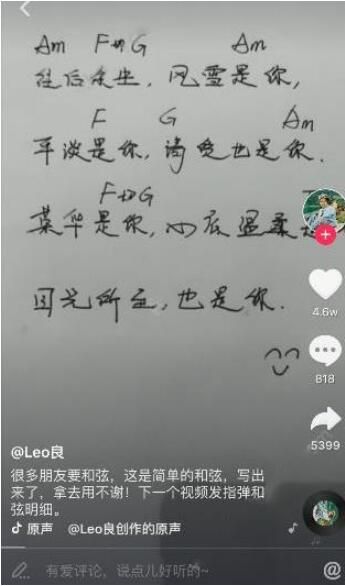 Am F→G Am
往后余生,风雪是你,
F G Am
平淡是你,清贫也是你.
F→G
荣华是你,心底温柔是
目光所至,也是你.
4.6w
818
5399
@Leo良
很多朋友要和弦,这是简单的和弦,写出
来了,拿去用不谢!下一个视频发指弹和
弦明细。
原声 @Leo良创作的原声
有爱评论,说点儿好听的~
@